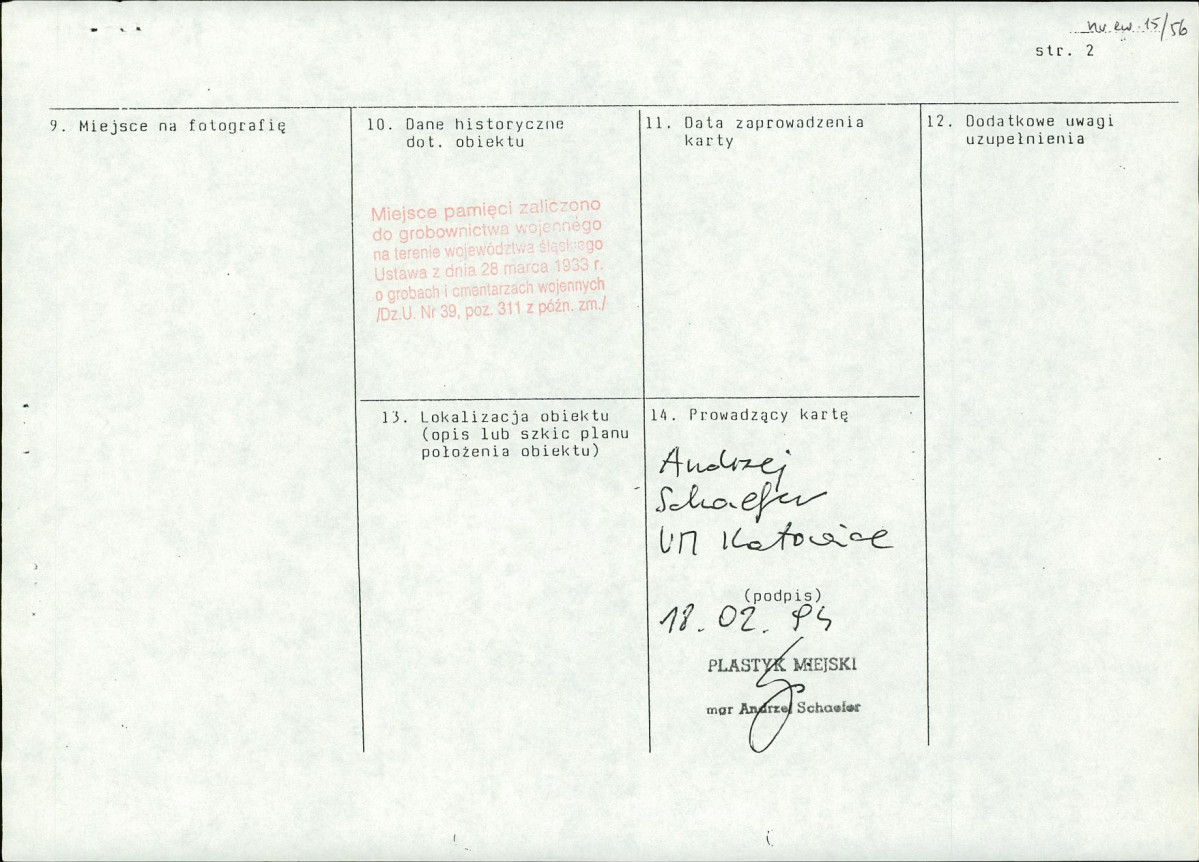 nr ew. 15/56
str. 2
9. Miejsce na fotografię
10. Dane historyczne
dot. obiektu
Miejsce pamięci zaliczono
do grobownictwa wojennego
na terenie województwa śląskiego
Ustawa z dnia 28 marca 1933 r.
o grobach i cmentarzach wojennych
/Dz.U. Nr 39, poz. 311 z późn. zm./
11. Data zaprowadzenia
karty
12. Dodatkowe uwagi
uzupełnienia
13. Lokalizacja obiektu
(opis lub szkic planu
położenia obiektu)
14. Prowadzący kartę
Andrzej
Schaefer
UM Katowice
(podpis)
18. 02.
PLASTYK MIEJSKI
mgr Andrzej Schaefer